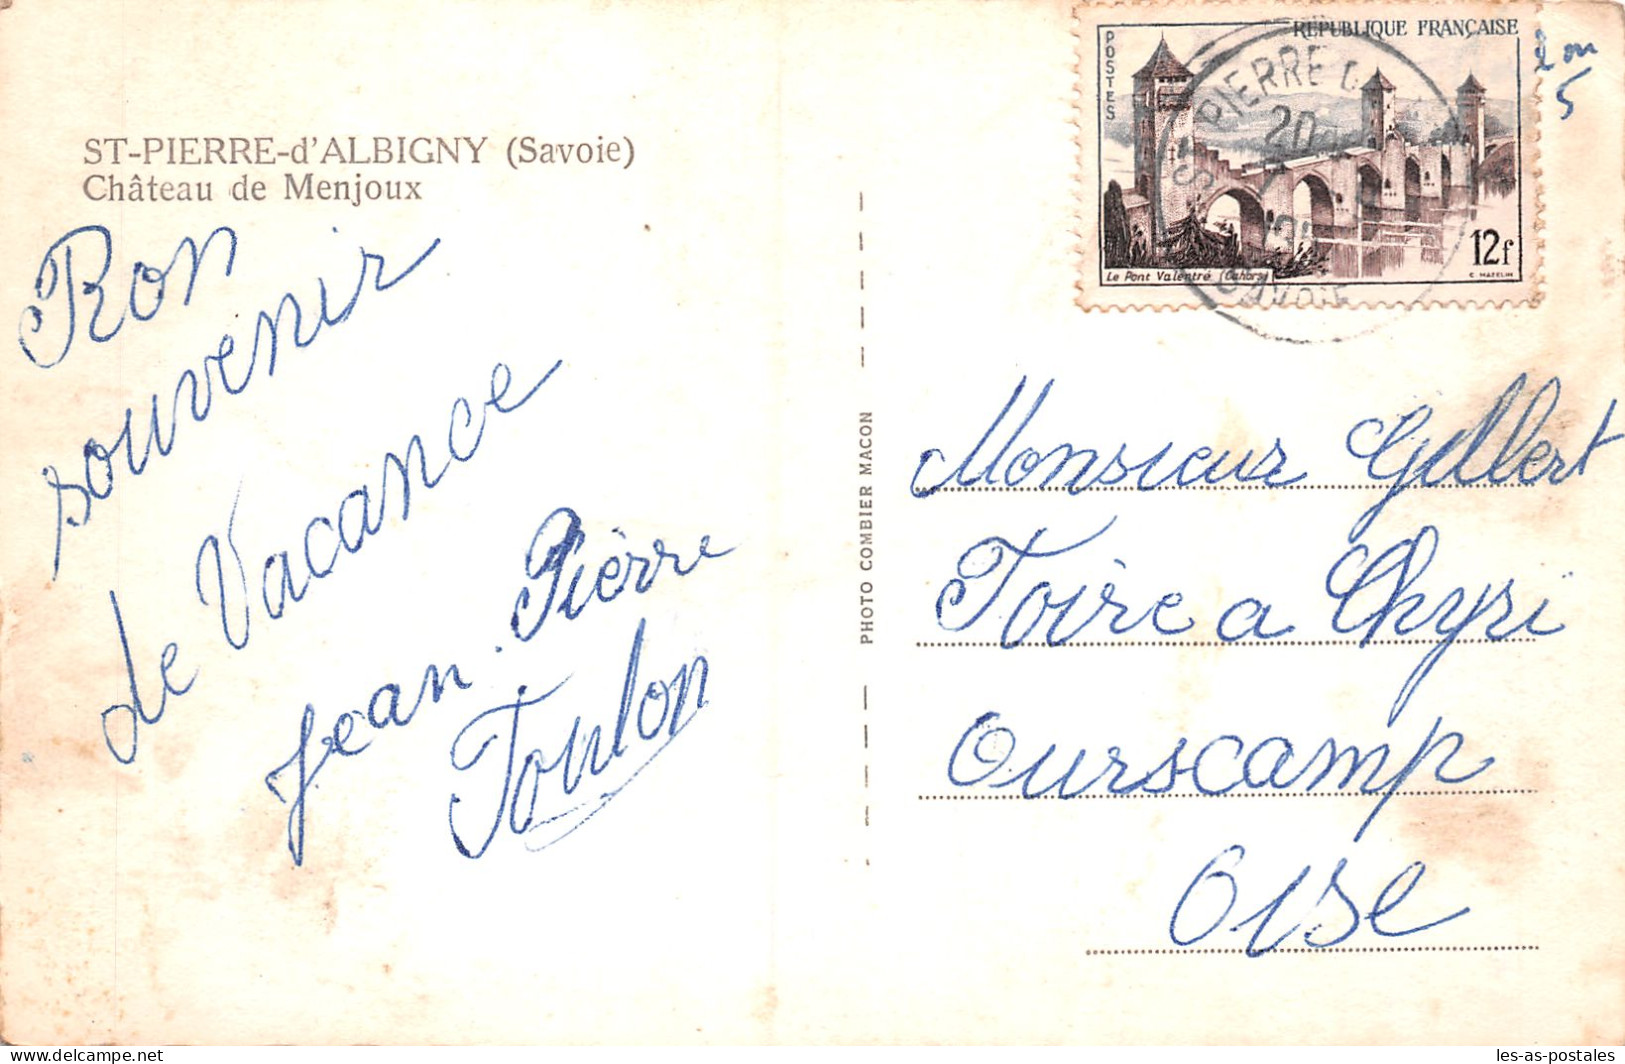 ST-PIERRE-d'ALBIGNY (Savoie)
Château de Menjoux
Bon
souvenir
de Vacance
Jean-Pierre
Toulon
PHOTO COMBIER MACON
RÉPUBLIQUE FRANÇAISE
POSTES
Le Pont Valentré (Cahors)
12f
C. MAZELIN
ST PIERRE D'
20
SAVOIE
5
Monsieur Gilbert
Toire a Chyri
Ourscamp
Oise
delcampe.net
les-as-postales